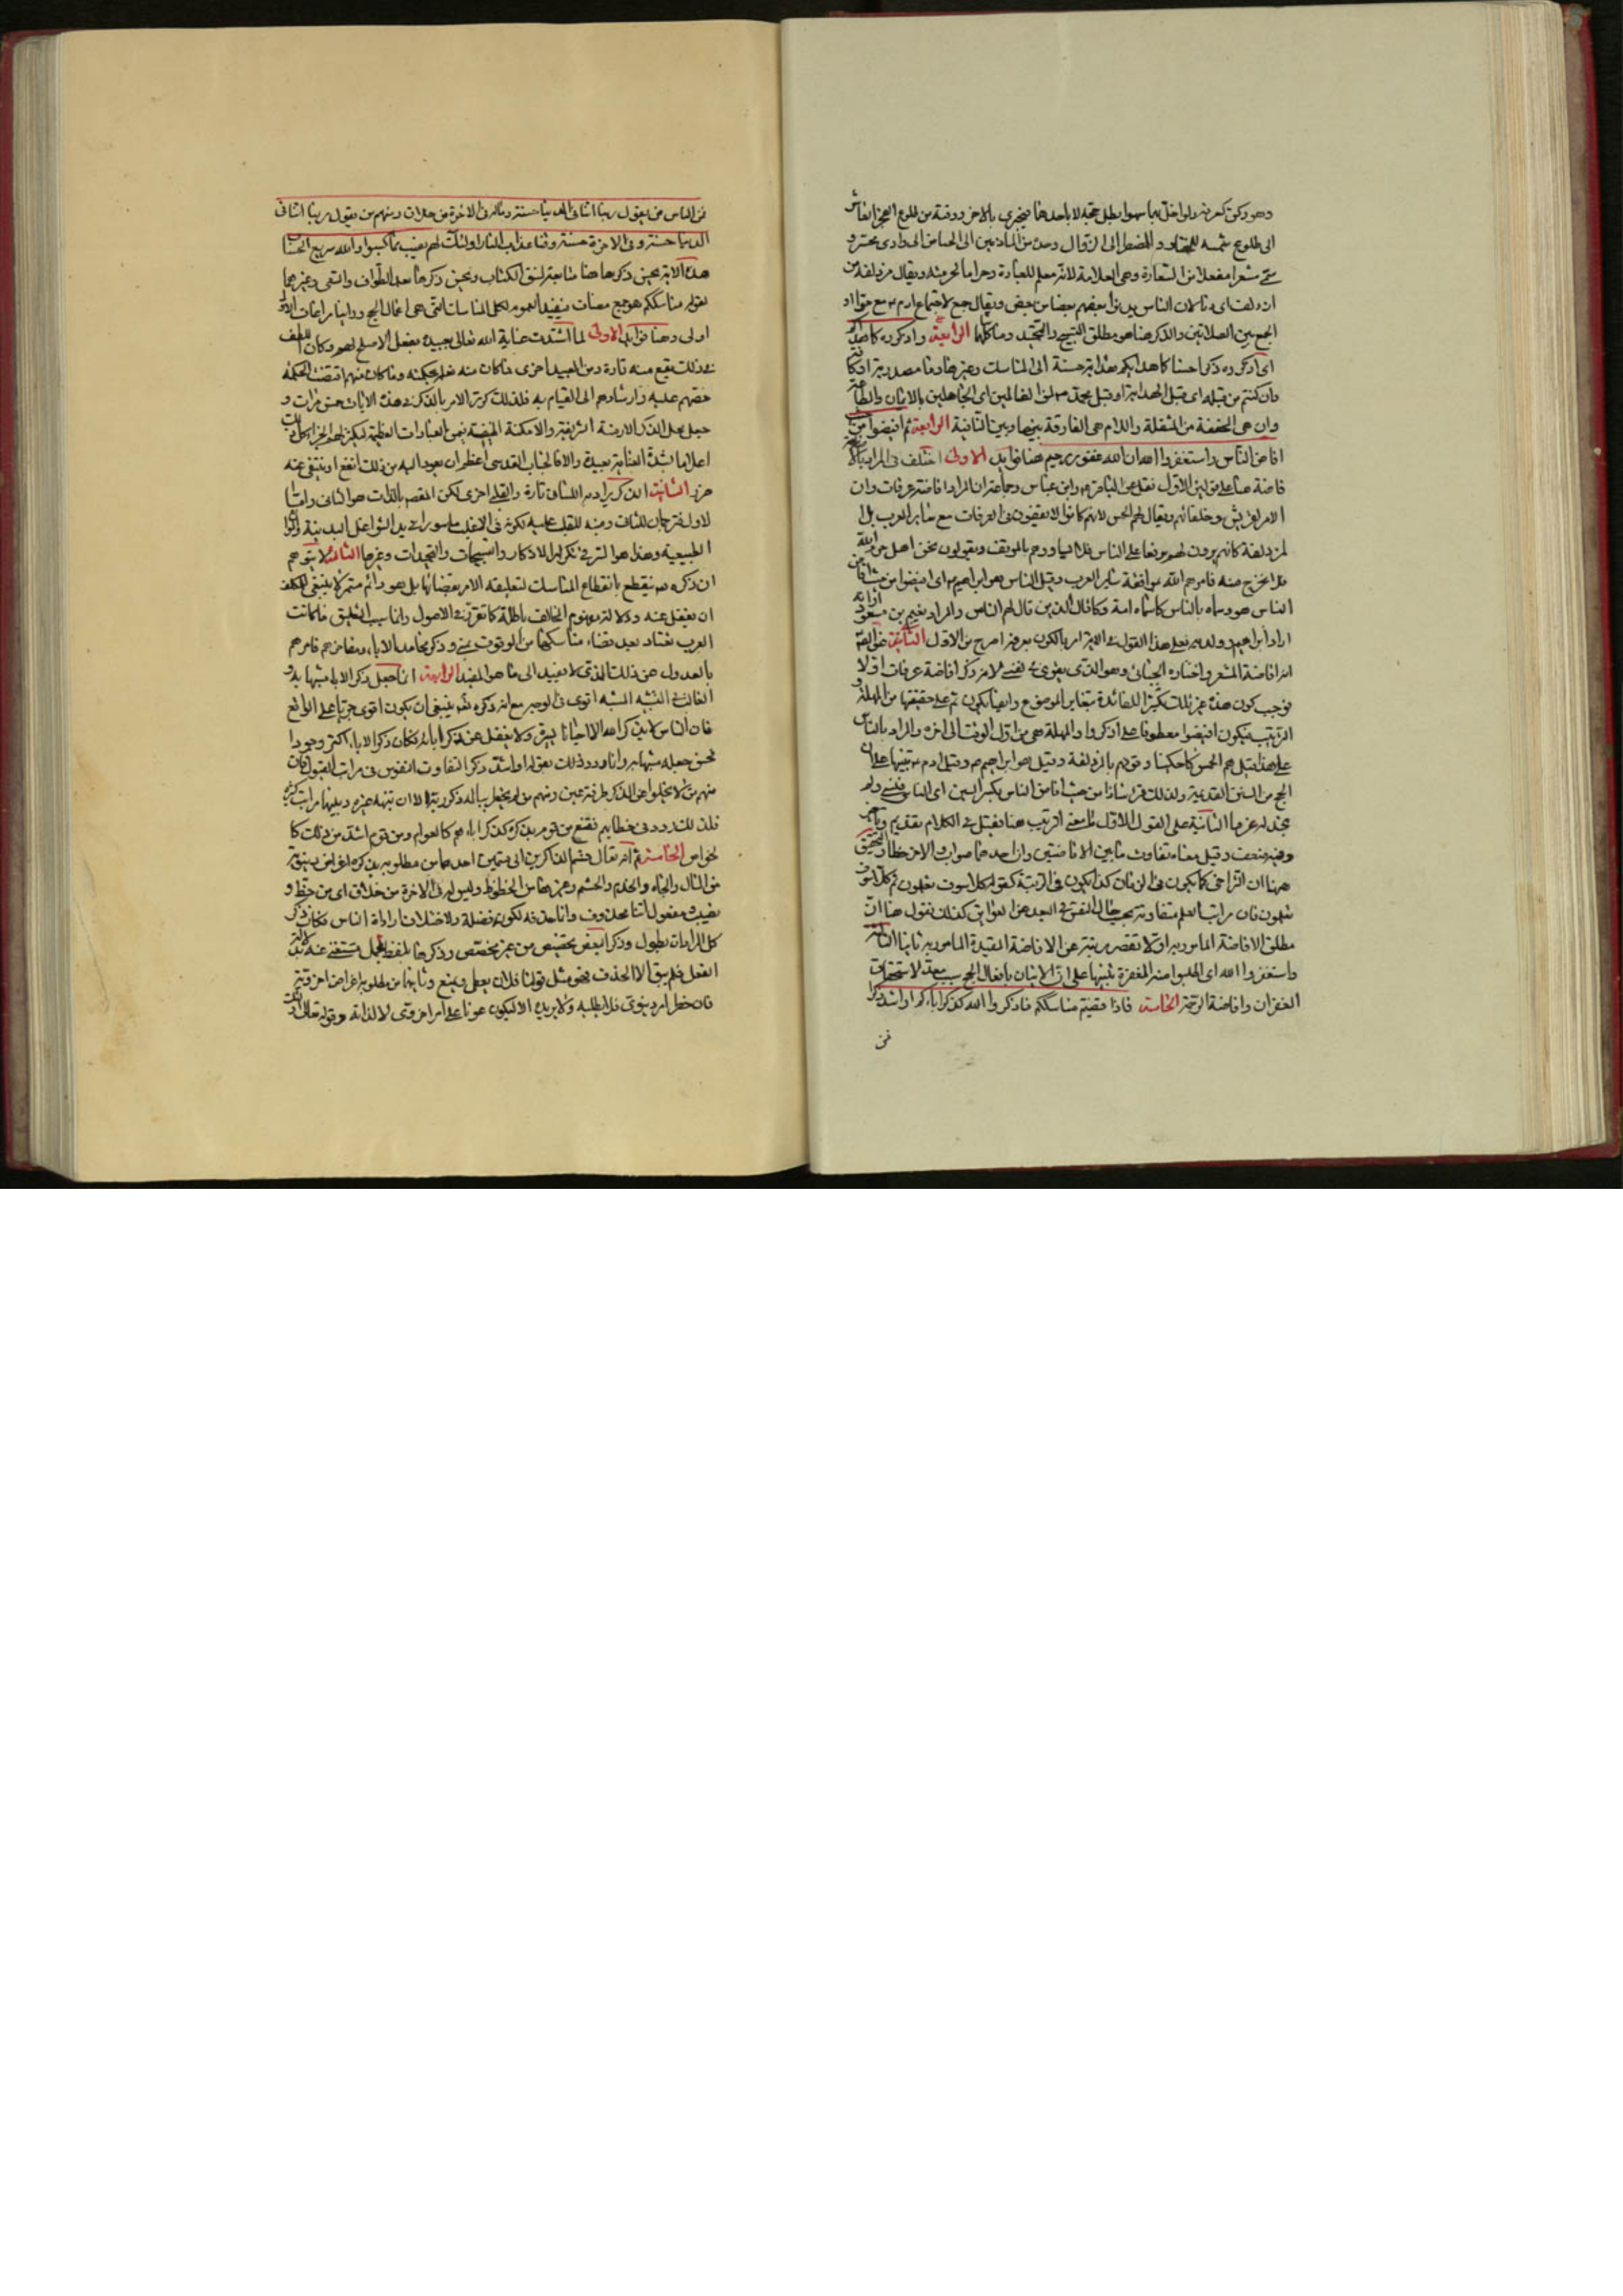 وهو ركن كعرفة ولو اخل بهما سهوا بطل حجه لا باحدهما فيجزى بالاخر ووقته من طلوع الفجر
الى طلوع شمسه للمختار وللمضطر الى الزوال وحده من المازمين الى الحياض الى وادى محسر و
سمى مشعرا مفعلا من الشعارة وهى العلامة لانه معلم للعبادة وحراما لحرمته ويقال مزدلفة من
ازدلف اى دنا لان الناس يدنوا بعضهم بعضا من بعض ويقال جمع لاجتماع ادم مع حوا او
الجمع بين الصلاتين والذكر هنا هو مطلق التسبيح والتحميد وما شاكلها الرابعة واذكروه كما هداكم
اى اذكروه ذكرا حسنا كما هداكم هداية حسنة الى المناسك وغيرها وما مصدرية او كافة
وان كنتم من قبله اى قبل الهداية او قبل محمد ص لمن الضالين اى الجاهلين بالايمان والطاعة
وان هى المخففة من المثقلة واللام هى الفارقة بينها وبين النافية الرابعة ثم افيضوا من حيث
افاض الناس واستغفروا الله ان الله غفور رحيم هنا فوايد الاولى اختلف فى المراد بالا
فاضة هنا على قولين الاول نقل عن الباقر ع وابن عباس وجماعة ان المراد افاضة عرفات وان
الامر لقريش وحلفائهم ويقال لهم الحمس لانهم كانوا لا يقفون فى العرفات مع سائر العرب بل
لمزدلفة كانهم يرون لهم ترفعا على الناس فلا يساووهم بالموقف ويقولون نحن اهل حرم الله
فلا نخرج منه فامرهم الله بموافقة سائر العرب وقيل الناس هو ابراهيم ع اى افيضوا من حيث افاض
الناس هو وسماه بالناس كما سماه امة وكما قال الذين قال لهم الناس والمراد نعيم بن مسعود
اراد ابراهيم وولديه فعلى هذا القول فى الاية امر بالكون بعرفة اصرح من الاول الثانى
انه افاضة المشعر واختاره الجبائى وهو الذى يقوى فى نفسى لانه ذكر افاضة عرفات اولا
فوجب كون هذه غير تلك تكثيرا للفائدة بتغاير الموضوع وايضا يكون ثم على حقيقتها من المهلة و
الترتيب فيكون افيضوا معطوفا على اذكروا والمهلة هى من اول الوقت الى اخره والمراد بالناس
على هذا قيل هم الحمس كما حكينا وقوفهم بالمزدلفة وقيل هو ابراهيم ع وقيل ادم ع تنبيها على ان
الحج من السنن القديمة ولذلك قرئ شاذا من حيث افاض الناس بكسر السين اى الناس فنسى ولم
نجد له عزما الثانية على القول الاول ما معنى الترتيب هنا فقيل فى الكلام تقديم وتاخير
وفيه ضعف وقيل معناه تفاوت ما بين الافاضتين وان احدهما صواب والاخر خطا والتحقيق
ههنا ان التراخى كما يكون فى الزمان كذا يكون فى الرتبة كقوله كلا سوف تعلمون ثم كلا سوف
تعلمون فان مراتب العلم متفاوتة بحسب حال النفس فى البعد عن العوايق كذلك نقول هنا ان
مطلق الافاضة المامور به اولا تقصر مرتبته عن الافاضة المقيدة المامور به ثانيا الثالثة
واستغفروا الله اى اطلبوا منه المغفرة تنبيها على ان الاتيان بافعال الحج سبب معد لاستحقاق
الغفران وافاضة الرحمة الخامسة فاذا قضيتم مناسككم فاذكروا الله كذكركم اباءكم او اشد ذكرا
فمن
فمن الناس من يقول ربنا اتنا فى الدنيا حسنة وماله فى الاخرة من خلاق ومنهم من يقول ربنا اتنا فى
الدنيا حسنة وفى الاخرة حسنة وقنا عذاب النار اولئك لهم نصيب مما كسبوا والله سريع الحساب
هذه الاية يحسن ذكرها هنا متابعة لنسق الكتاب ويحسن ذكرها بعد الطواف والسعى وغيرهما
لقوله مناسككم هو جمع مضاف فيفيد العموم لكل المناسك التى هى افعال الحج
اولى وهنا فوايد الاولى لما اشتدت عناية الله تعالى بعبيده بفعل الاصلح لهم وكان اللطف
فى ذلك يقع منه تارة ومن العبيد اخرى فما كان منه فعله بحكمته وما كان منهم اقتضت الحكمة
حضهم عليه وارشادهم الى القيام به فلذلك كرر الامر بالذكر فى هذه الايات خمس مرات و
جعل محل الذكر الازمنة الشريفة والامكنة المنيفة ضمن العبادات العظيمة ليكثر لهم الجزاء
اعلاما بشدة العناية بعبيده والا فالجناب القدسى اعظم ان يعود اليه من ذلك نفع او ينتفى عنه
ضرر الثانية الذكر يراد به اللسانى تارة والقلبى اخرى لكن المقصود بالذات هو الثانى وانما
الاول فترجمان للثانى ومنبه للقلب عليه لكونه فى الاغلب ماسورا فى يد الشواغل البدنية
الطبيعية وهذا هو السر فى تكرار الاذكار والتسبيحات والتحميدات وغيرها الثالثة لا يتوهم
ان ذكره ص ينقطع بانقطاع المناسك لتعليقه الامر بقضائها بل هو دائم مستمر لا ينبغى للمكلف
ان يغفل عنه ودلالة مفهوم المخالفة باطلة كما تقرر فى الاصول وانما سبب التعليق فلما كانت
العرب تعتاد بعد قضاء مناسكها من الوقوف بمنى وذكر محامد الاباء ومفاخرهم فامرهم
بالعدول عن ذلك الذى لا يفيد الى ما هو المفيد الرابعة انما جعل ذكر الاباء مشبها به و
الغالب فى التشبيه المشبه به اقوى فى الوجه مع ان ذكره تعالى ينبغى ان يكون اقوى جريا على الواقع
فان الناس لا يذكر الله الا احيانا يسيرة ولا يغفل عن ذكر ابائه فكان ذكر الاباء اكثر وجودا
فحسن جعله مشبها به وانما ورد ذلك بقوله او اشد ذكرا لتفاوت النفوس فى مراتب القبول فان
منهم من لا يخلوا عن الذكر طرفة عين ومنهم من لم يخطر بباله ذكر ربه الا ان ينبهه غيره وبينهما مراتب كثيرة
فلذلك ردد فى خطابهم تقنع من قوم بذكره كذكر اباءهم كالعوام ومن قوم اشد من ذلك كا
لخواص الخامسة ثم انه تعالى قسم الذاكرين الى قسمين احدهما من مطلوبه بذكره اغراض دنيوية
من المال والجاه والخدم والحشم وغيرها من الحظوظ وليس له فى الاخرة من خلاق اى من حظ و
نصيب ومفعول اتنا محذوف وانما حذفه لكونه فضلة ولاختلاف ارادة الناس فكان ذكر
كل المرادات يطول وذكر البعض تخصيص من غير مخصص وذكرها بلفظ مجمل مستغنى عنه لدلالة
الفعل فلم يبق الا الحذف فهو مثل قولنا فلان يعطى ويمنع وثانيهما من مطلوبه اغراض اخروية
فان خطر امر دنيوى فلا يطلبه ولا يريده الا ليكون عونا على امر اخروى لا لذاته وقوله تعالى اولئك